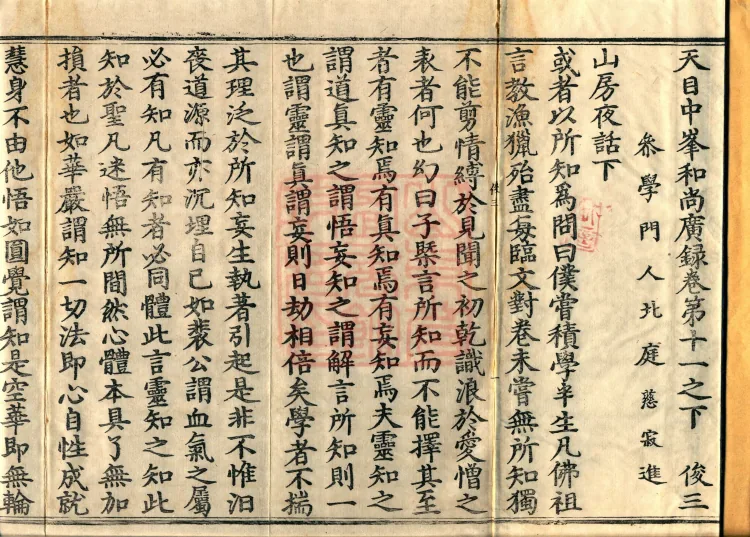 天目中峯和尚廣録卷第十一之下　俊三
叅學門人北庭慈寂進
山房夜話下
或者以所知爲問曰僕嘗積學半生凡佛祖
言教漁獵殆盡每臨文對卷未嘗無所知獨
不能剪情縛於見聞之初乾識浪於愛憎之
表者何也幻曰子槩言所知而不能擇其至
者有靈知焉有真知焉有妄知焉夫靈知之
謂道真知之謂悟妄知之謂解言所知則一
也謂靈謂真謂妄則日劫相倍矣學者不揣
其理泛於所知妄生執著引起是非不惟汩
喪道源而亦沉埋自己如裴公謂血氣之屬
必有知凡有知者必同體此言靈知之知此
知於聖凡迷悟無所間然心體本具了無加
損者也如華嚴謂知一切法即心自性成就
慧身不由他悟如圓覺謂知是空華即無輪